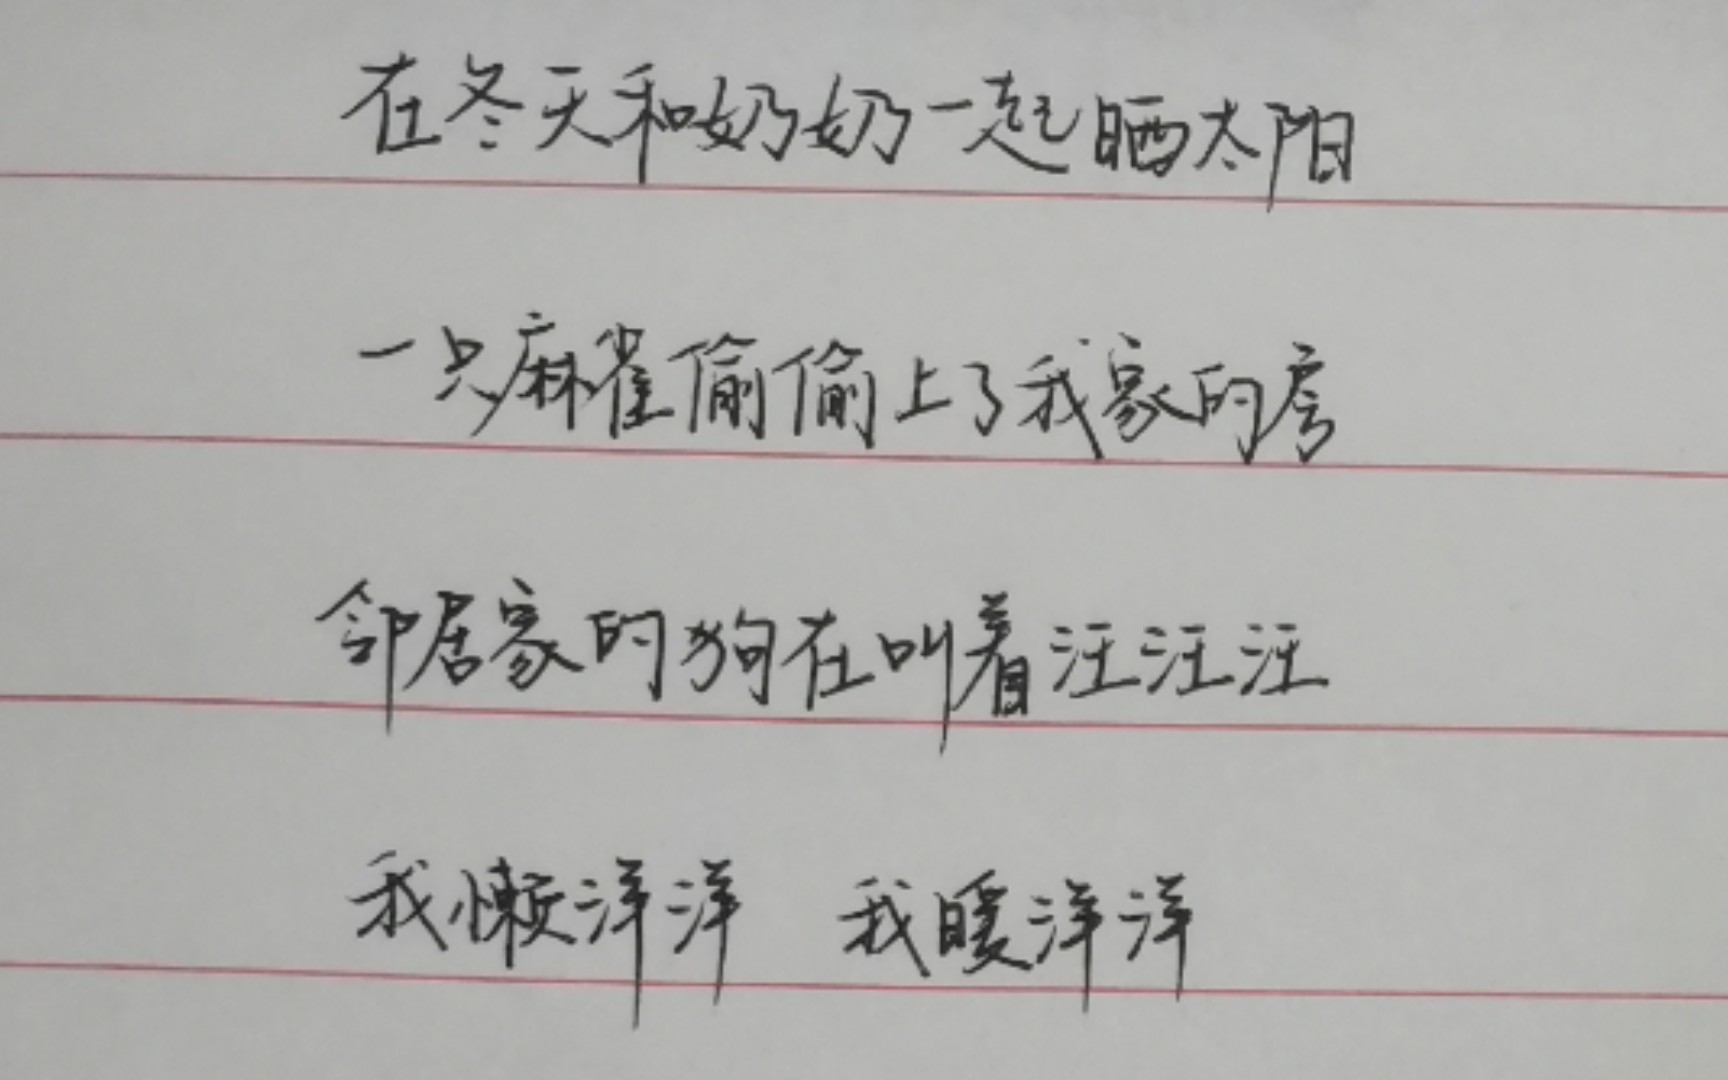 在冬天和奶奶一起晒太阳
一只麻雀偷偷上了我家的房
邻居家的狗在叫着汪汪汪
我懒洋洋 我暖洋洋